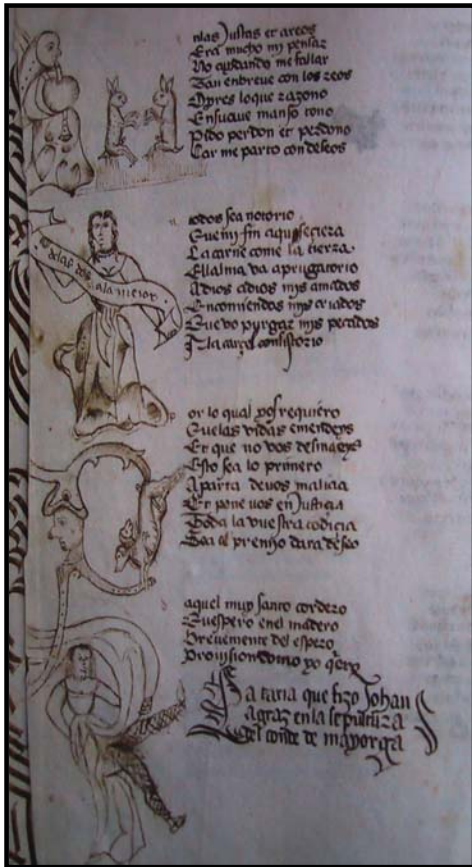 nlas Justas et areos
Era mucho mi pensar
No cuydando me fallar
Tan enbreue con los reos
Opres loque razono
Ensuaue manso tono
Pido perdon et perdono
Car me parto con deseos
todos sea notorio
Que mi fin aqui seciera
La carne come la tierra
El alma va a prugatorio
A dios adios mys amados
Encomiendos mys criados
Quedo purgar mys pecados
la carcel consistorio
delas dos
ala meior
or lo qual vos requiero
Quelas vidas emendeys
Et que no vos desmayeys
Esto sea lo primero
Aparta deuos malicia
Et pone uos en Justicia
Toda la vuestra codicia
Sea el premio dara deseo
aquel muy santo cordero
Quespero enel madero
Breuemente del espero
Prouision como yo quero
La taria que fizo Johan
Agraz en la sepultura
del conde de mayorga